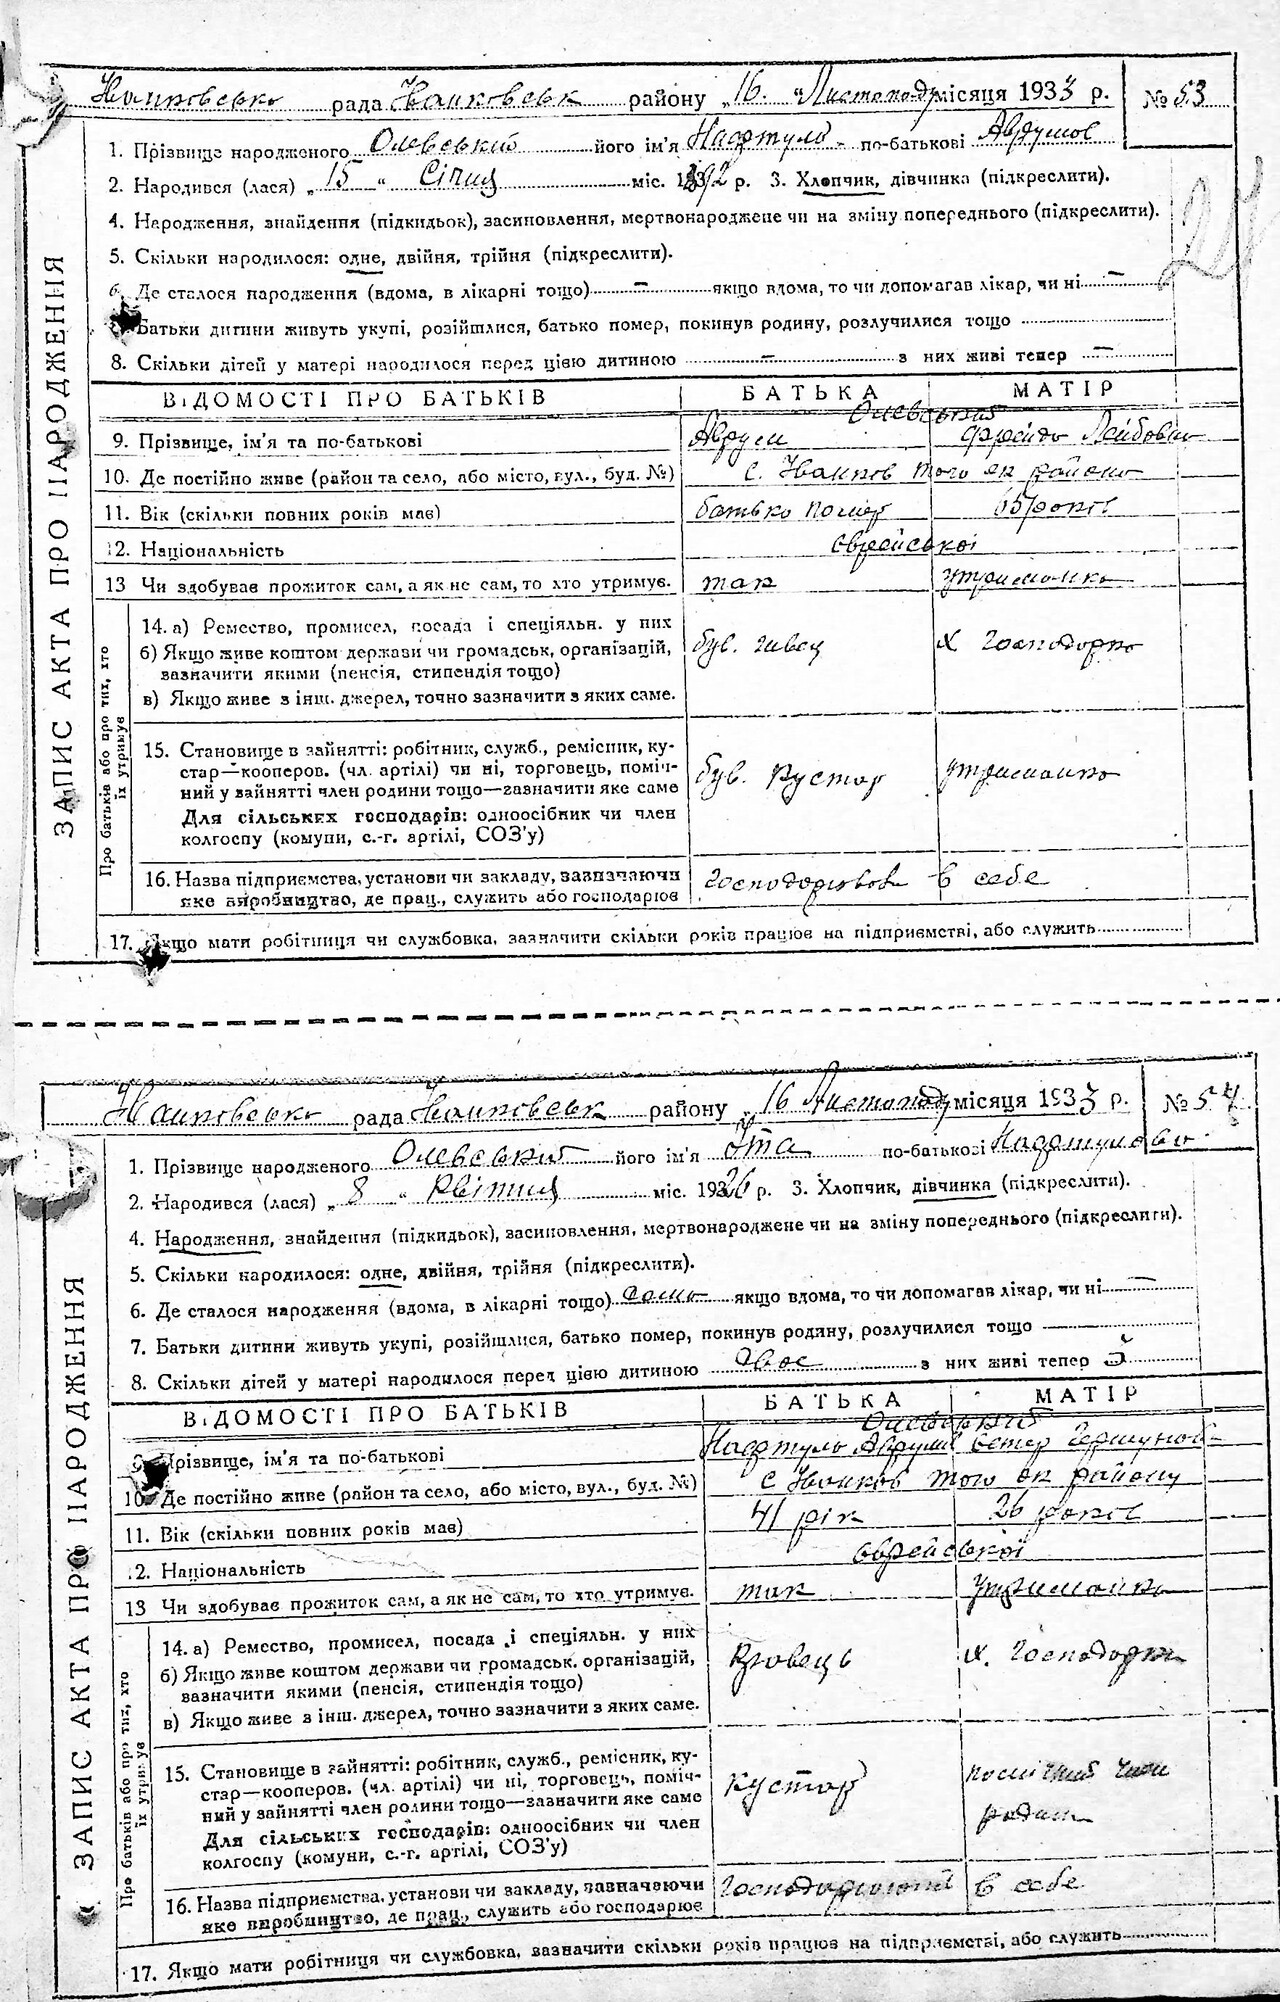 Іванковсько рада Іванковськ району „16. " Листопаду місяця 1933 р. № 53
1. Прізвище народженого Олевський його ім'я Нафтуль по-батькові Аврумов
2. Народився (лася) „ 15 " Січня міс. 1892 р. 3. Хлопчик, дівчинка (підкреслити).
4. Народження, знайдення (підкидьок), засиновлення, мертвонароджене чи на зміну попереднього (підкреслити).
5. Скільки народилося: одне, двійня, трійня (підкреслити).
6. Де сталося народження (вдома, в лікарні тощо) — якщо вдома, то чи допомагав лікар, чи ні —
Батьки дитини живуть укупі, розійшлися, батько помер, покинув родину, розлучилися тощо
8. Скільки дітей у матері народилося перед цією дитиною — з них живі тепер —
ВІДОМОСТІ ПРО БАТЬКІВ БАТЬКА МАТІР
Олевський
9. Прізвище, ім'я та по-батькові Аврум Фрейда Лейбовна
10. Де постійно живе (район та село, або місто, вул., буд. №) с. Іванков того ж району
11. Вік (скільки повних років має) батько помер 65 років
12. Національність єврейської
13 Чи здобував прожиток сам, а як не сам, то хто утримує. так утриманка
14. а) Ремество, промисел, посада і спеціяльн. у них
б) Якщо живе коштом держави чи громадськ. організацій, зазначити якими (пенсія, стипендія тощо) був. швец х господарка
в) Якщо живе з інш. джерел, точно зазначити з яких саме.
15. Становище в зайнятті: робітник, служб., ремісник, ку-
стар—кооперов. (чл. артілі) чи ні, торговець, поміч-
ний у зайнятті член родини тощо—зазначити яке саме був. кустар утриманка
Для сільських господарів: одноосібник чи член
колгоспу (комуни, с.-г. артілі, СОЗ'у)
16. Назва підприємства, установи чи закладу, зазначаючи
яке виробництво, де прац., служить або господарює господарював в себе
17. Якщо мати робітниця чи службовка, зазначити скільки років працює на підприємстві, або служить
ЗАПИС АКТА ПРО НАРОДЖЕННЯ
Про батьків або про тих, хто їх утримує
Іванковсько рада Іванковськ району „16 Листопаду місяця 1933 р. № 54
1. Прізвище народженого Олевський його ім'я Іта по-батькові Нафтуловн
2. Народився (лася) „ 8 " Квітня міс. 1926 р. 3. Хлопчик, дівчинка (підкреслити).
4. Народження, знайдення (підкидьок), засиновлення, мертвонароджене чи на зміну попереднього (підкреслити).
5. Скільки народилося: одне, двійня, трійня (підкреслити).
6. Де сталося народження (вдома, в лікарні тощо) дома якщо вдома, то чи допомагав лікар, чи ні —
7. Батьки дитини живуть укупі, розійшлися, батько помер, покинув родину, розлучилися тощо
8. Скільки дітей у матері народилося перед цією дитиною двоє з них живі тепер
ВІДОМОСТІ ПРО БАТЬКІВ БАТЬКА МАТІР
Олевський
Прізвище, ім'я та по-батькові Нафтуль Аврумів Естер
10. Де постійно живе (район та село, або місто, вул., буд. №) с Іванков того ж району
11. Вік (скільки повних років має) 41 рік 26 років
12. Національність єврейської
13 Чи здобував прожиток сам, а як не сам, то хто утримує. так утриманка
14. а) Ремество, промисел, посада і спеціяльн. у них
б) Якщо живе коштом держави чи громадськ. організацій, зазначити якими (пенсія, стипендія тощо) кровець х. господарка
в) Якщо живе з інш. джерел, точно зазначити з яких саме.
15. Становище в зайнятті: робітник, служб., ремісник, ку-
стар—кооперов. (чл. артілі) чи ні, торговець, поміч-
ний у зайнятті член родини тощо—зазначити яке саме кустар помічний член родини
Для сільських господарів: одноосібник чи член
колгоспу (комуни, с.-г. артілі, СОЗ'у)
16. Назва підприємства, установи чи закладу, зазначаючи
яке виробництво, де прац., служить або господарює в себе
17. Якщо мати робітниця чи службовка, зазначити скільки років працює на підприємстві, або служить
ЗАПИС АКТА ПРО НАРОДЖЕННЯ
Про батьків або про тих, хто їх утримує